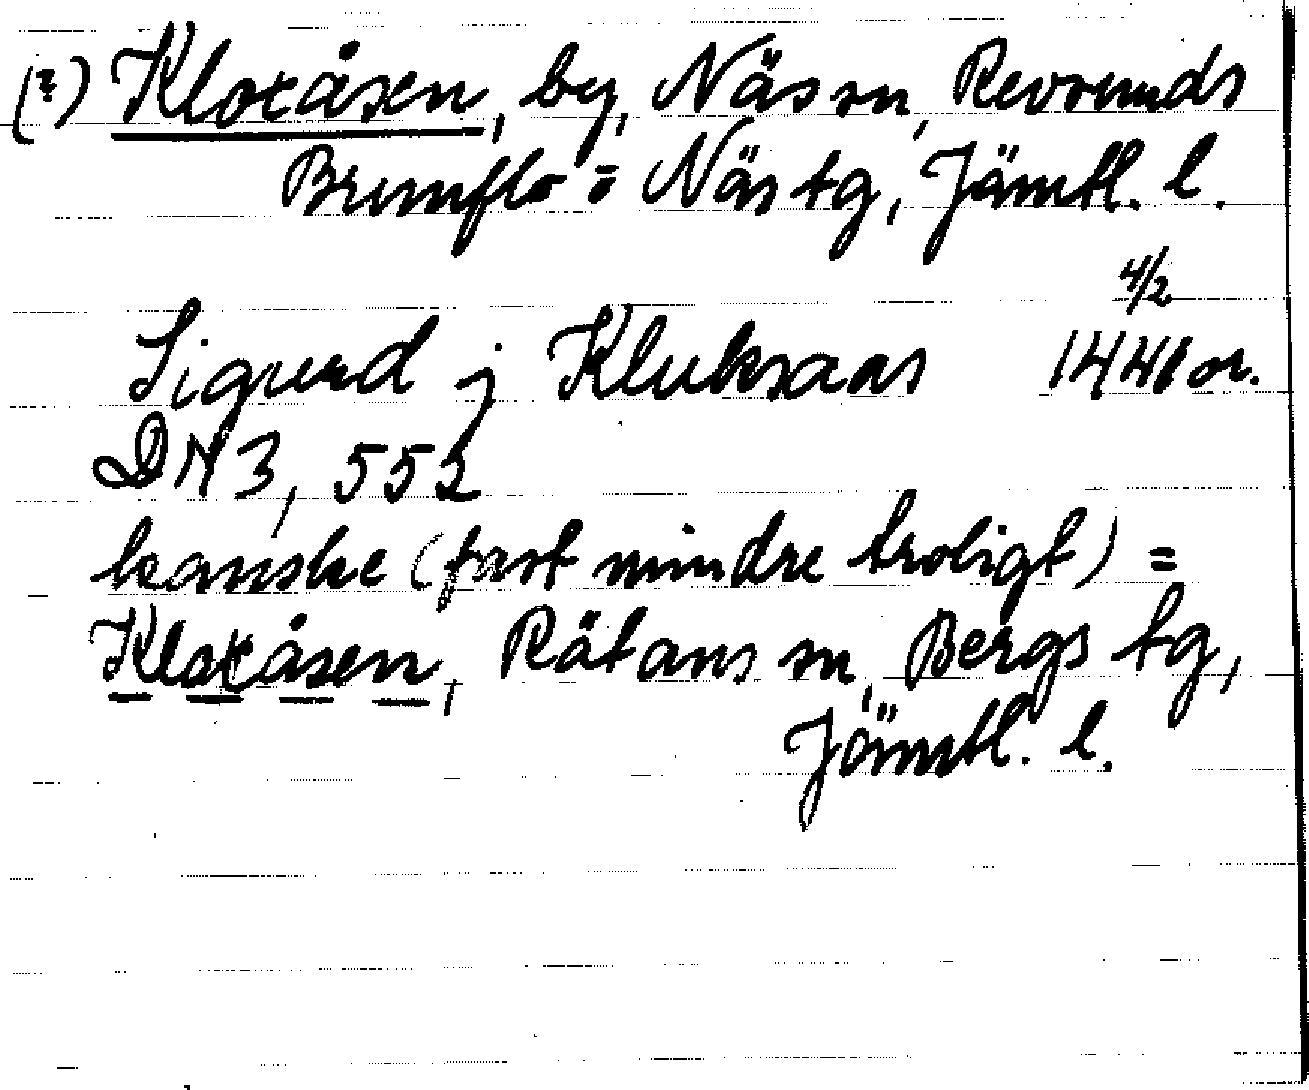 (?) Kloxåsen, by, Näs sn, Revsunds
Brunflo o Näs tg, Jämtl. l.
4/2
Sigurd j Kluksaas 1441 or.
DN 3, 552
kanske (fast mindre troligt) =
Kloxåsen, Rätans sn, Bergs tg,
Jämtl. l.